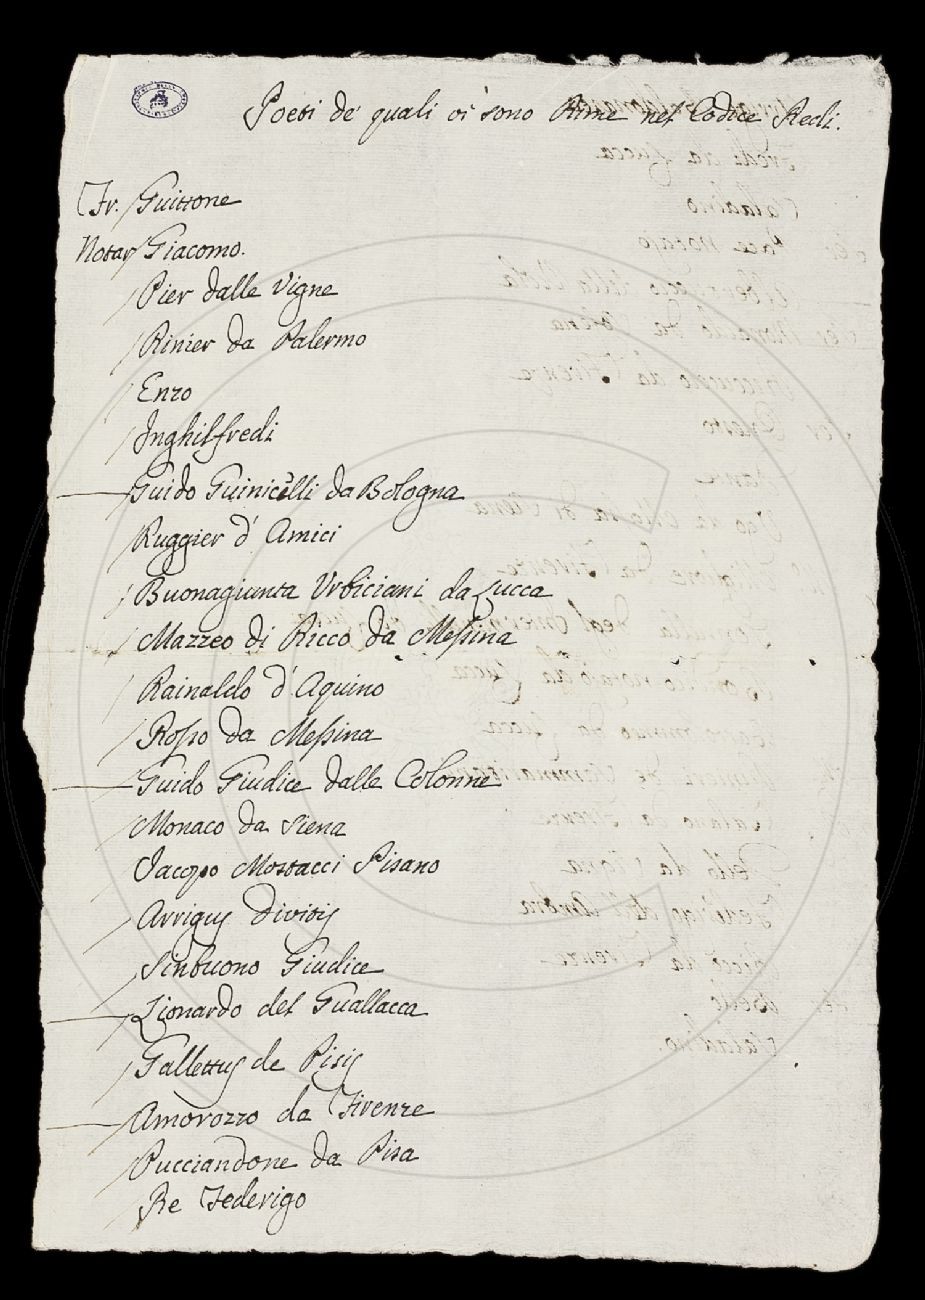 Poeti de' quali vi sono Rime nel Codice Redi.
Fr. Guittone
Notar Giacomo.
Pier dalle Vigne
Rinier da Palermo
Enzo
Inghilfredi
Guido Guinicelli da Bologna
Ruggier d' Amici
Buonagiunta Urbiciani da Lucca
Mazzeo di Ricco da Messina
Rainaldo d'Aquino
Rosso da Messina
Guido Giudice dalle Colonne
Monaco da Siena
Jacopo Mostacci Pisano
Arrigus Divitis
Sinbuono Giudice
Lionardo del Guallacca
Gallettus de Pisis
Amorozzo da Firenze
Pucciandone da Pisa
Re Federigo